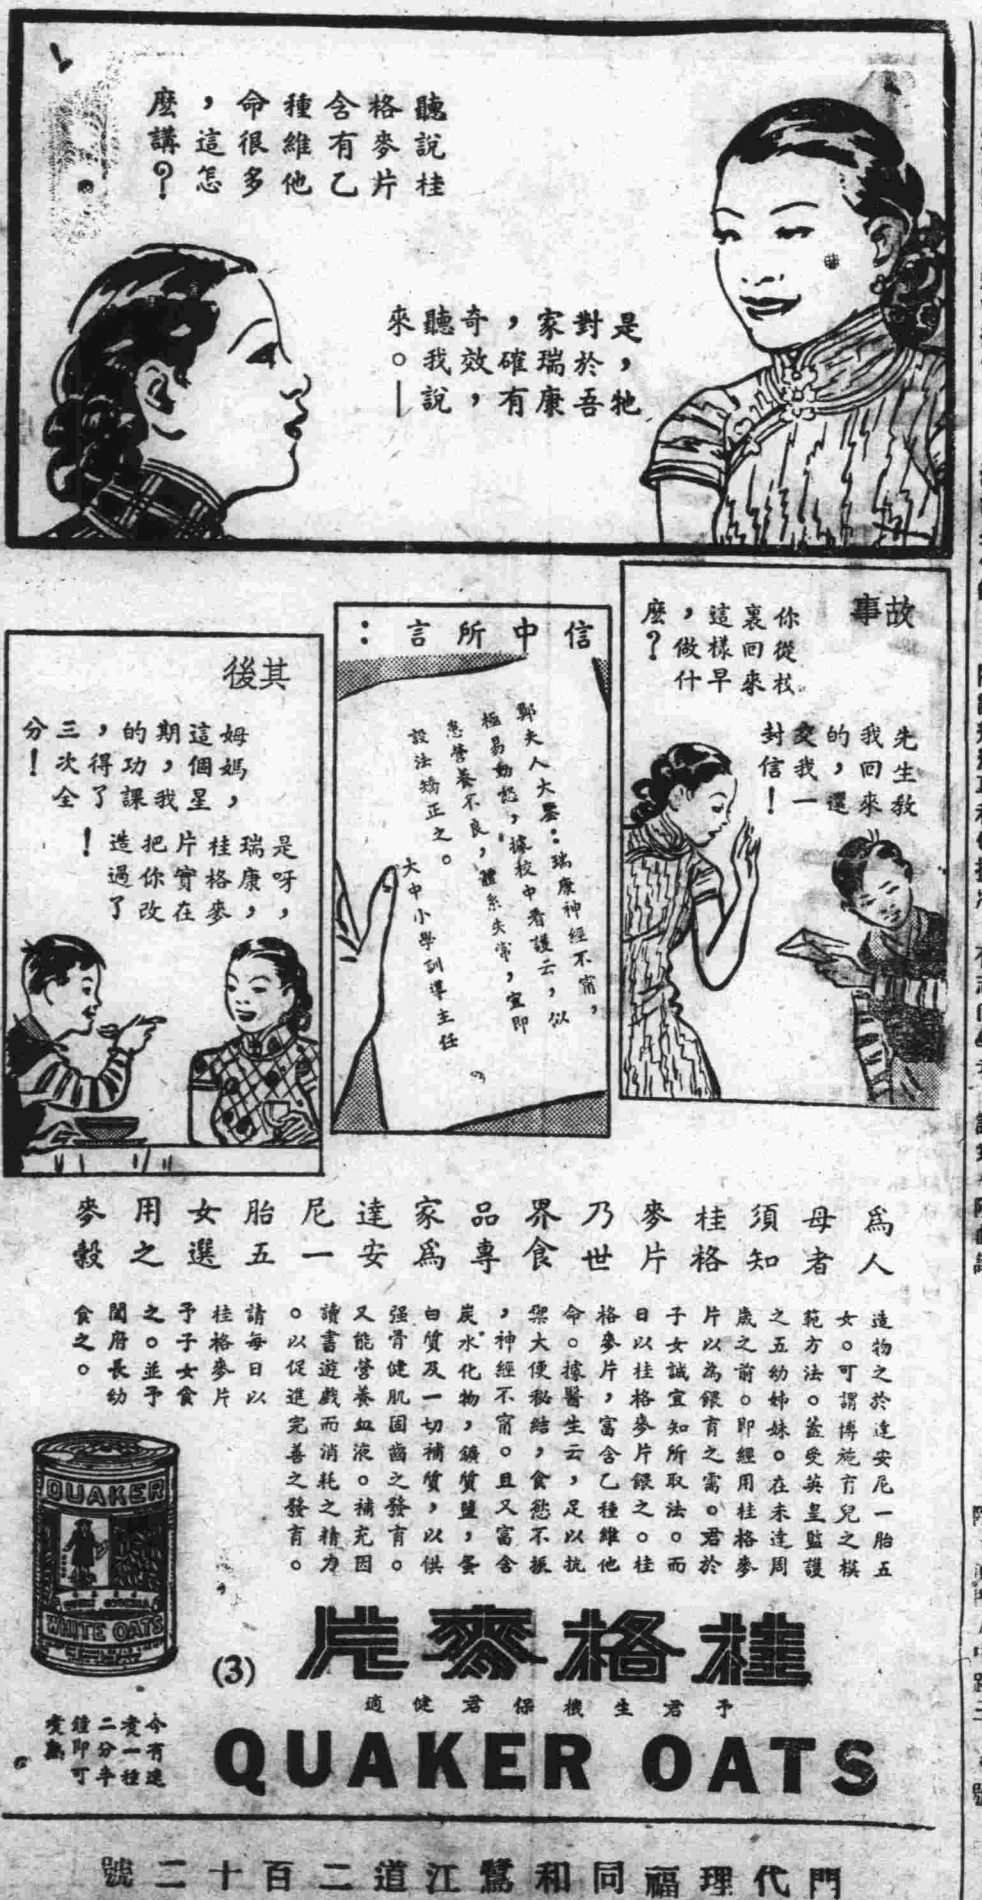 聽說桂
格麥片
含有乙
種維他
命很多
，這怎
麽講？
是，牠
對於吾
家瑞康
，確有
奇效，
聽我說
來。—
故事
你從校
裏回來
這樣早
，做什
麽？
先生教
我回來
的，還
交我一
封信！
信中所言：
鄭夫人大鑒：瑞康神經不甯，
極易動怒，據校中看護云，似
患營養不良，體系失常，宜即
設法矯正之。
大中小學訓導主任
其後
姆媽，
這個星
期，我
的功課
，得了
三次全
分！
是呀，
瑞康，
桂格麥
片實在
把你改
造過了
！
為人
母者
須知
桂格
麥片
乃世
界食
品專
家為
達安
尼一
胎五
女選
用之
麥穀
造物之於達安尼一胎五
女。可謂博施育兒之模
範方法。蓋受英皇監護
之五幼姊妹。在未達周
歲之前。即經用桂格麥
片以為餵育之需。君於
子女誠宜知所取法。而
日以桂格麥片餵之。桂
格麥片，富含乙種維他
命。據醫生云，足以抗
禦大便秘結，食慾不振
，神經不甯。且又富含
炭水化物，鑛質鹽，蛋
白質及一切補質，以供
强骨健肌固齒之發育。
又能營養血液。補充因
讀書遊戲而消耗之精力
。以促進完善之發育。
請每日以
桂格麥片
予子女食
之。並予
闔府長幼
食之。
QUAKER
WHITE OATS
桂格麥片
(3)
予君生機保君健適
QUAKER OATS
今有速
煑一種
二分半
鐘即可
煑熟
門代理福同和鷺江道二百十二號